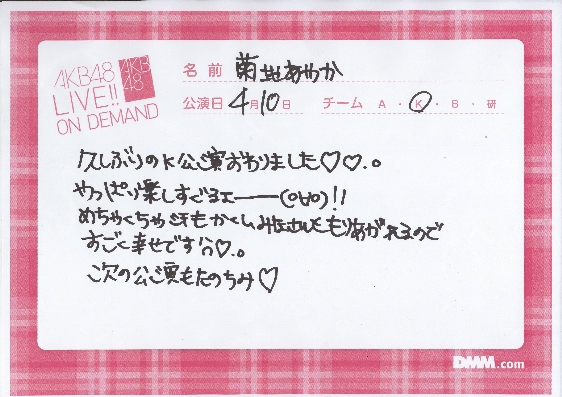 AKB48
LIVE!!
ON DEMAND
AKB
48
名前 菊地あやか
公演日 4月10日 チーム A・K・B・研
久しぶりのK公演おわりました♡♡.。
やっぱり楽しすぎるエーーー(°∀°)!!
めちゃくちゃ汗もかくしみなさんともりあがれるので
すごく幸せです♡.。
次の公演もたのちみ♡
DMM.com